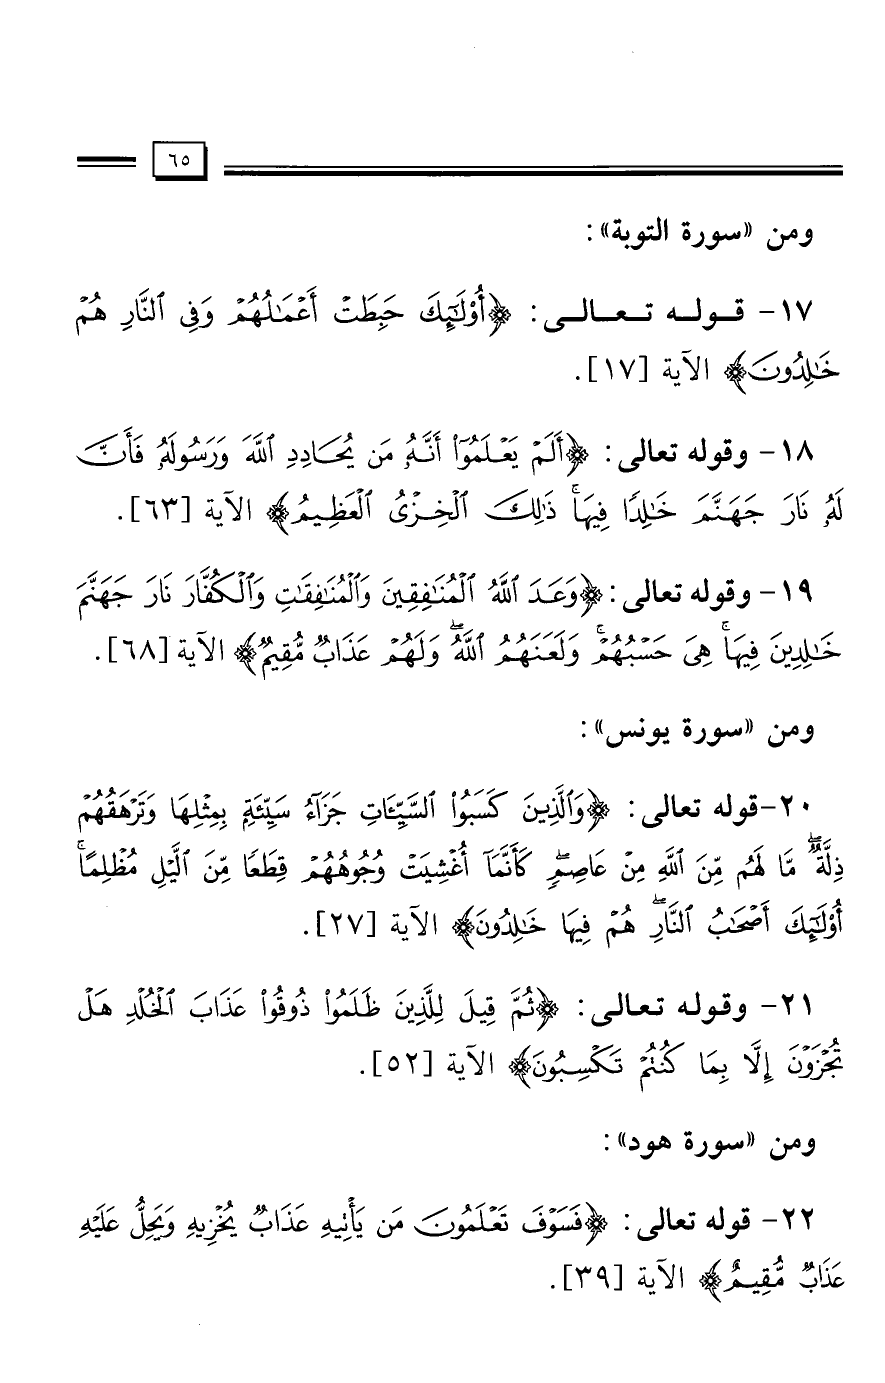 ٦٥
ومن «سورة التوبة»:
١٧- قوله تعالى: ﴿أُوْلَٰٓئِكَ حَبِطَتْ أَعْمَٰلُهُمْ وَفِى ٱلنَّارِ هُمْ
خَٰلِدُونَ﴾ الآية [١٧].
١٨- وقوله تعالى: ﴿أَلَمْ يَعْلَمُوٓا۟ أَنَّهُۥ مَن يُحَادِدِ ٱللَّهَ وَرَسُولَهُۥ فَأَنَّ
لَهُۥ نَارَ جَهَنَّمَ خَٰلِدًا فِيهَا ۚ ذَٰلِكَ ٱلْخِزْىُ ٱلْعَظِيمُ﴾ الآية [٦٣].
١٩- وقوله تعالى: ﴿وَعَدَ ٱللَّهُ ٱلْمُنَٰفِقِينَ وَٱلْمُنَٰفِقَٰتِ وَٱلْكُفَّارَ نَارَ جَهَنَّمَ
خَٰلِدِينَ فِيهَا ۚ هِىَ حَسْبُهُمْ ۚ وَلَعَنَهُمُ ٱللَّهُ ۖ وَلَهُمْ عَذَابٌ مُّقِيمٌ﴾ الآية [٦٨].
ومن «سورة يونس»:
٢٠-قوله تعالى: ﴿وَٱلَّذِينَ كَسَبُوا۟ ٱلسَّيِّـَٔاتِ جَزَآءُ سَيِّئَةٍۭ بِمِثْلِهَا وَتَرْهَقُهُمْ
ذِلَّةٌ ۖ مَّا لَهُم مِّنَ ٱللَّهِ مِنْ عَاصِمٍ ۖ كَأَنَّمَآ أُغْشِيَتْ وُجُوهُهُمْ قِطَعًا مِّنَ ٱلَّيْلِ مُظْلِمًا ۚ
أُو۟لَٰٓئِكَ أَصْحَٰبُ ٱلنَّارِ ۖ هُمْ فِيهَا خَٰلِدُونَ﴾ الآية [٢٧].
٢١- وقوله تعالى: ﴿ثُمَّ قِيلَ لِلَّذِينَ ظَلَمُوا۟ ذُوقُوا۟ عَذَابَ ٱلْخُلْدِ هَلْ
تُجْزَوْنَ إِلَّا بِمَا كُنتُمْ تَكْسِبُونَ﴾ الآية [٥٢].
ومن «سورة هود»:
٢٢- قوله تعالى: ﴿فَسَوْفَ تَعْلَمُونَ مَن يَأْتِيهِ عَذَابٌ يُخْزِيهِ وَيَحِلُّ عَلَيْهِ
عَذَابٌ مُّقِيمٌ﴾ الآية [٣٩].